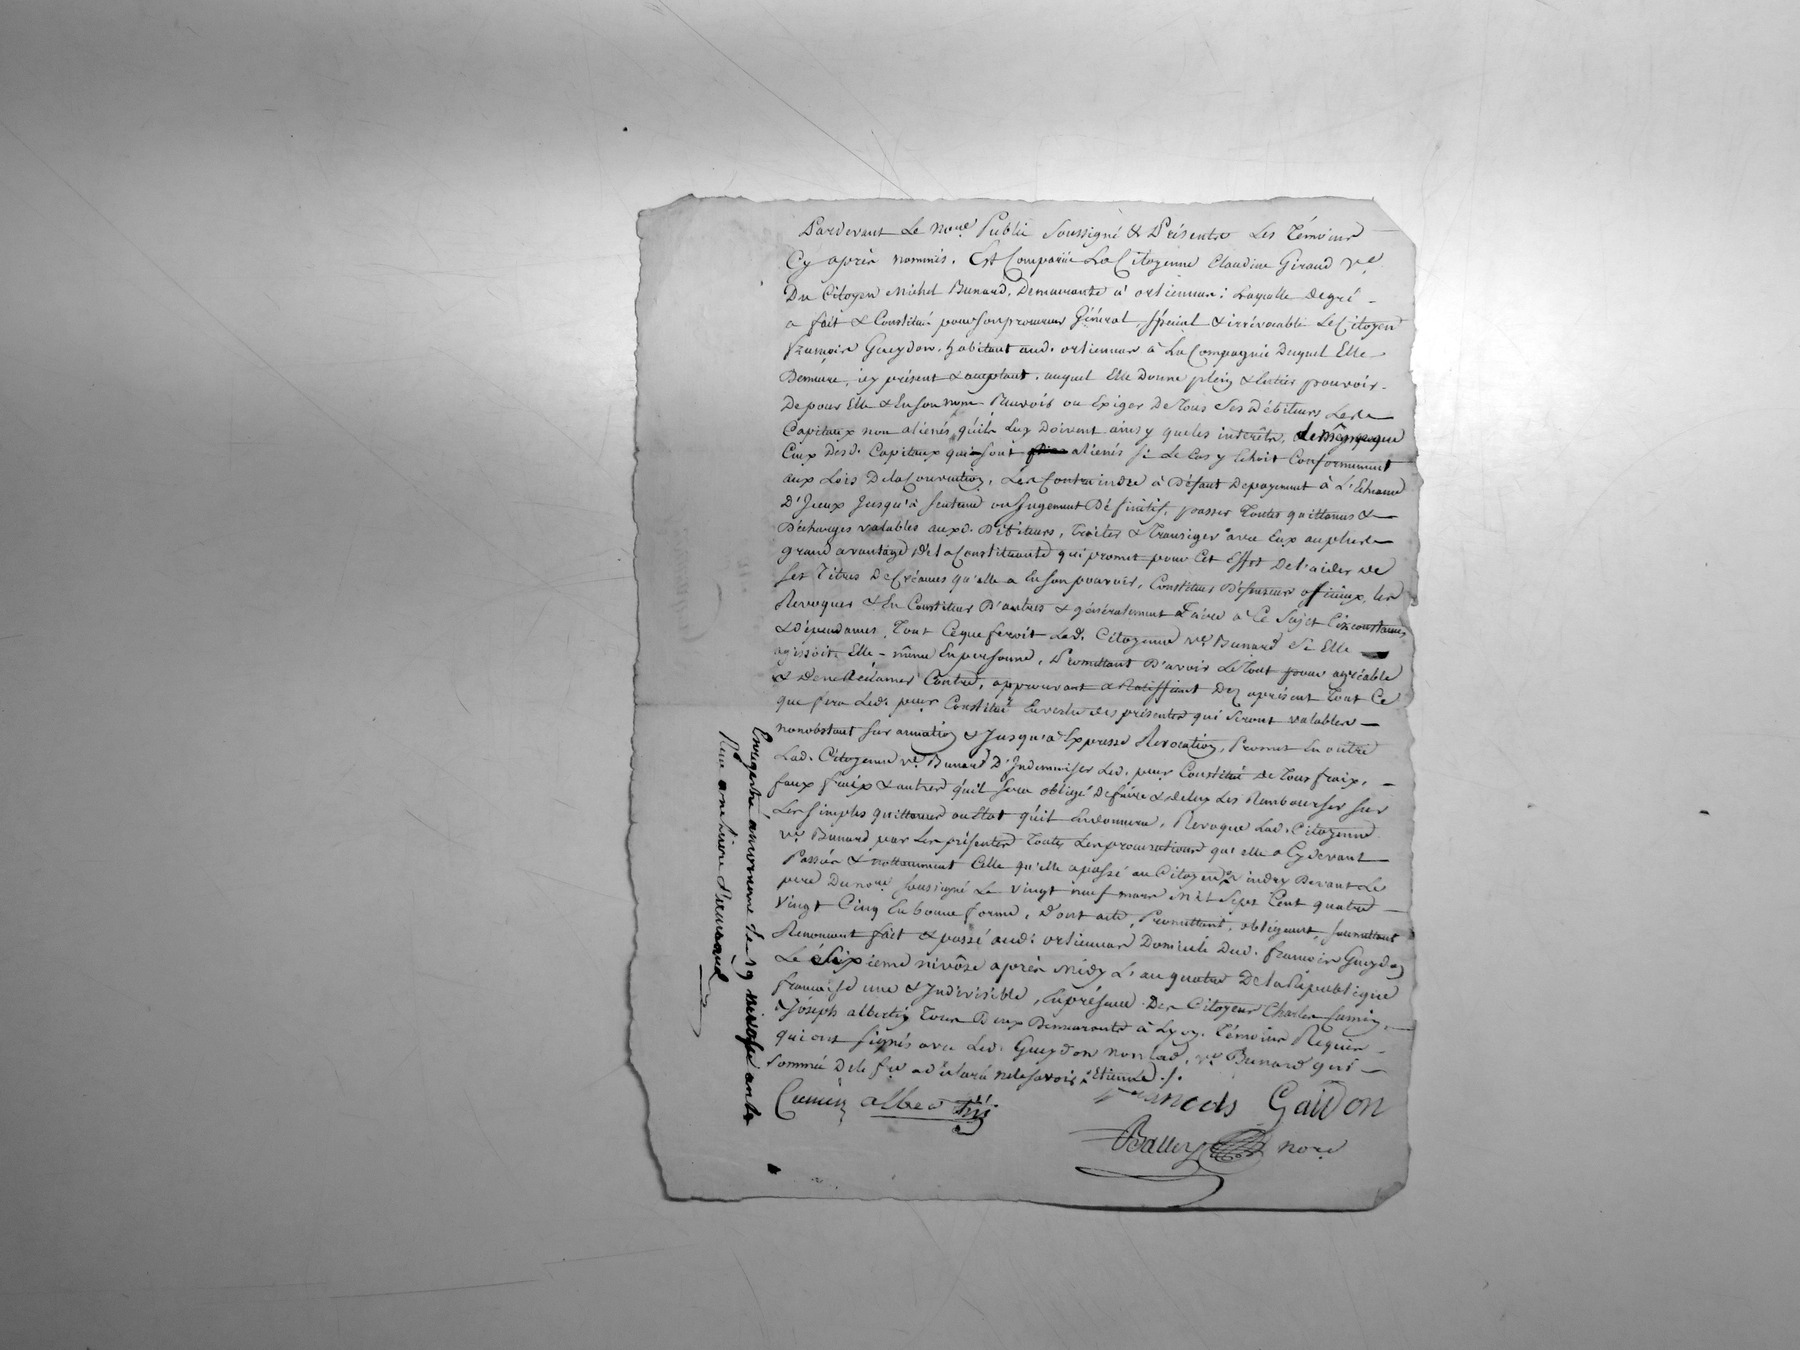 Pardevant Le no.re Public soussigné & Présents Les témoins
Cy après nommés. Est Comparüe La Citoyenne Claudine Giraud v.e
Du Citoyen Michel Bunard, Demeurante à ; Laquelle degré -
a fait & Constitué pour son procureur Général, spécial & irrévocable Le Citoyen
françois Gueydon, habitant aud. à La Compagnie Duquel Elle
Demeure, icy présent & acceptant, auquel Elle Donne plein & Entier pouvoir -
De pour Elle & En son nom Recevoir ou Exiger De tous ses Débiteurs Les
Capitaux non aliénés qu'ils Luy Doivent ainsy que les intérêts, de même que
Ceux Desd. Capitaux qui sont aliénés si Le Cas y Echoit Conformément
aux Lois De la Convention, Les Contraindre à Défaut De payement à L'Echeance
D'Iceux Jusqu'à sentence ou Jugement Définitif, passer toutes quittances &
Décharges valables auxd. Débiteurs, traiter & transiger avec Eux au plus
grand avantage De la Constituante qui promet pour Cet Effet De l'aider de
ses titres De Créances qu'elle a En son pouvoir, Constituer Défenseurs officieux, les
Revoquer & En Constituer D'autres & généralement faire à Ce sujet Circonstances
& dépendances, tout Ce que feroit Lad. Citoyenne v.e Bunard si Elle
agissoit Elle-même En personne, Promettant D'avoir Le tout pour agréable
& De ne Réclamer Contre, approuvant & Ratiffiant Dez aprésent tout Ce
que fera Led. pr.eur Constitué En vertu des présentes qui seront valables
nonobstant surannation & Jusqu'à Expresse Revocation, Promet En outre
Lad. Citoyenne v.e Bunard D'Indemniser Led. pr.eur Constitué De tous fraix, -
faux fraix & autres qu'il sera obligé De faire & de luy Les Rembourser sur
Les simples quittances ou Etat qu'il En donnera, Revoque Lad. Citoyenne
v.e Bunard par Les présentes toutes Les procurations qu'elle a Cy devant
Passées & nottamment Celle qu'elle a passé au Citoyen Devant Le
pere Du no.re soussigné Le vingt neuf mars Mil Sept Cent quatre
Vingt Cinq En bonne forme, D'ont acte, Promettant, obligeant, soumettant
Renonçant fait & passé aud. Domicile Dud. françois Gueydon
Le Sixieme nivôse après Midy L'an quatre De la République
françoise une & Indivisible, En présence Des Citoyens Charles
& Joseph Albertin tous Deux Demeurants à Lyon, témoins Requis -
qui ont signés avec Led. Gueydon non Lad. v.e Bunard qui
sommée De le f.re a déclaré ne le savoir ./.
Cumin albertin
françois Gaidon
Balley nore
Enregistré a le 19 nivose an 4